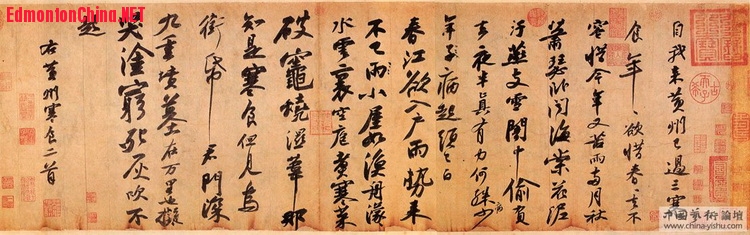 EdmontonChina.NET
自我来黄州已過三寒
食年〻欲惜春〻去不
容惜今年又苦雨兩月秋
蕭瑟卧聞海棠花泥
汙燕支雪闇中偷負
去夜半真有力何殊病少
年子病起頭已白
春江欲入户雨勢来
不已雨小屋如漁舟濛〻
水雲裏空庖煮寒菜
破竈燒濕葦那
知是寒食但見烏
銜帋君門深
九重墳墓在万里也擬
哭塗窮死灰吹不
起
右黄州寒食二首
中国藝術論壇
www.china-yishu.com